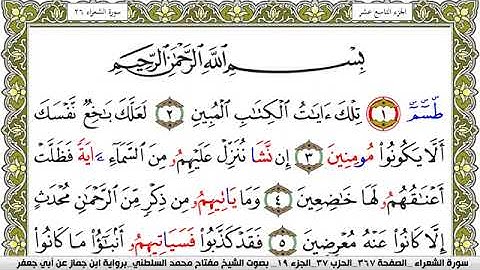 سورة الشعراء ٢٦
الجزء التاسع عشر
بِسْمِ اللَّهِ الرَّحْمَٰنِ الرَّحِيمِ
طسٓمٓ ١ تِلْكَ ءَايَٰتُ الْكِتَٰبِ الْمُبِينِ ٢ لَعَلَّكَ بَٰخِعٌ نَّفْسَكَ
أَلَّا يَكُونُوا مُومِنِينَ ٣ إِن نَّشَا نُنَزِّل عَلَيْهِمُۥ مِنَ السَّمَآءِ ءَايَةً فَظَلَّتْ
أَعْنَٰقُهُمُۥ لَهَا خَٰضِعِينَ ٤ وَمَا يَاتِيهِمُۥ مِن ذِكْرٍ مِّنَ الرَّحْمَٰنِ مُحْدَثٍ
إِلَّا كَانُوا عَنْهُ مُعْرِضِينَ ٥ فَقَدْ كَذَّبُوا فَسَيَاتِيهِمُۥ أَنۢبَٰٓؤُا مَا كَانُوا
سورة الشعراء _ الصفحة ٣٦٧_ الحزب ٣٧_ الجزء ١٩ _ بصوت الشيخ مفتاح محمد السلطني_ برواية ابن جماز عن أبي جعفر